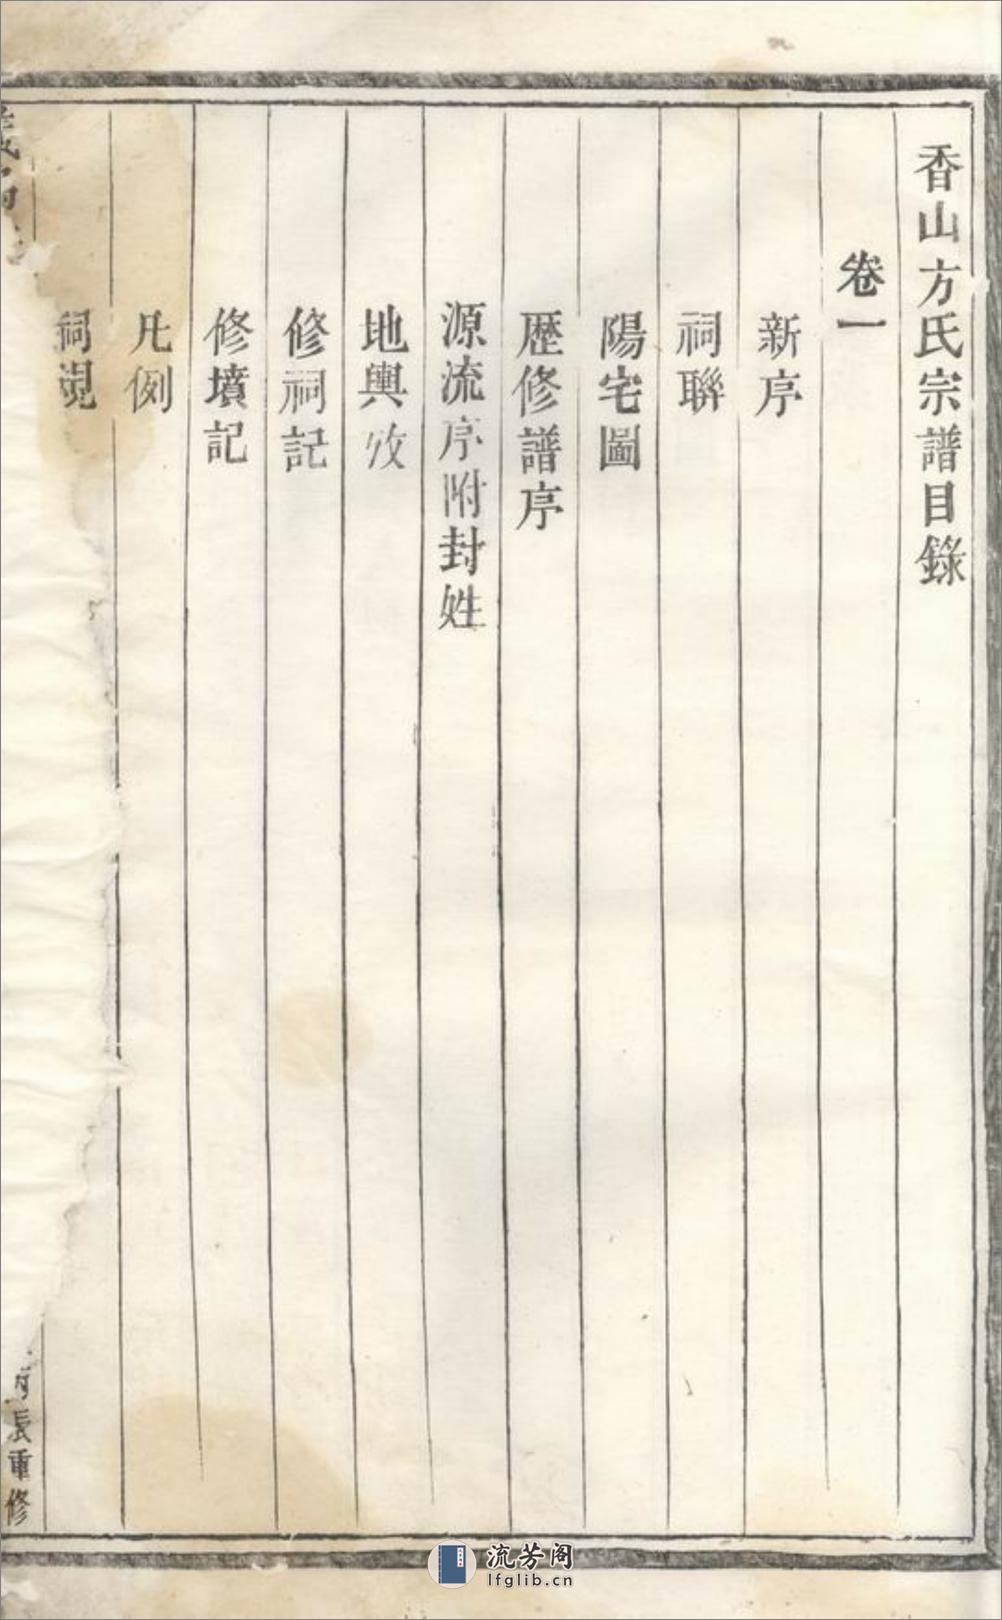 香山方氏宗譜目錄
卷一
新序
祠聯
陽宅圖
歷修譜序
源流序附封姓
地輿攷
修祠記
修墳記
凡例
祠規
義
長重修
流芳阁
lfglib.cn